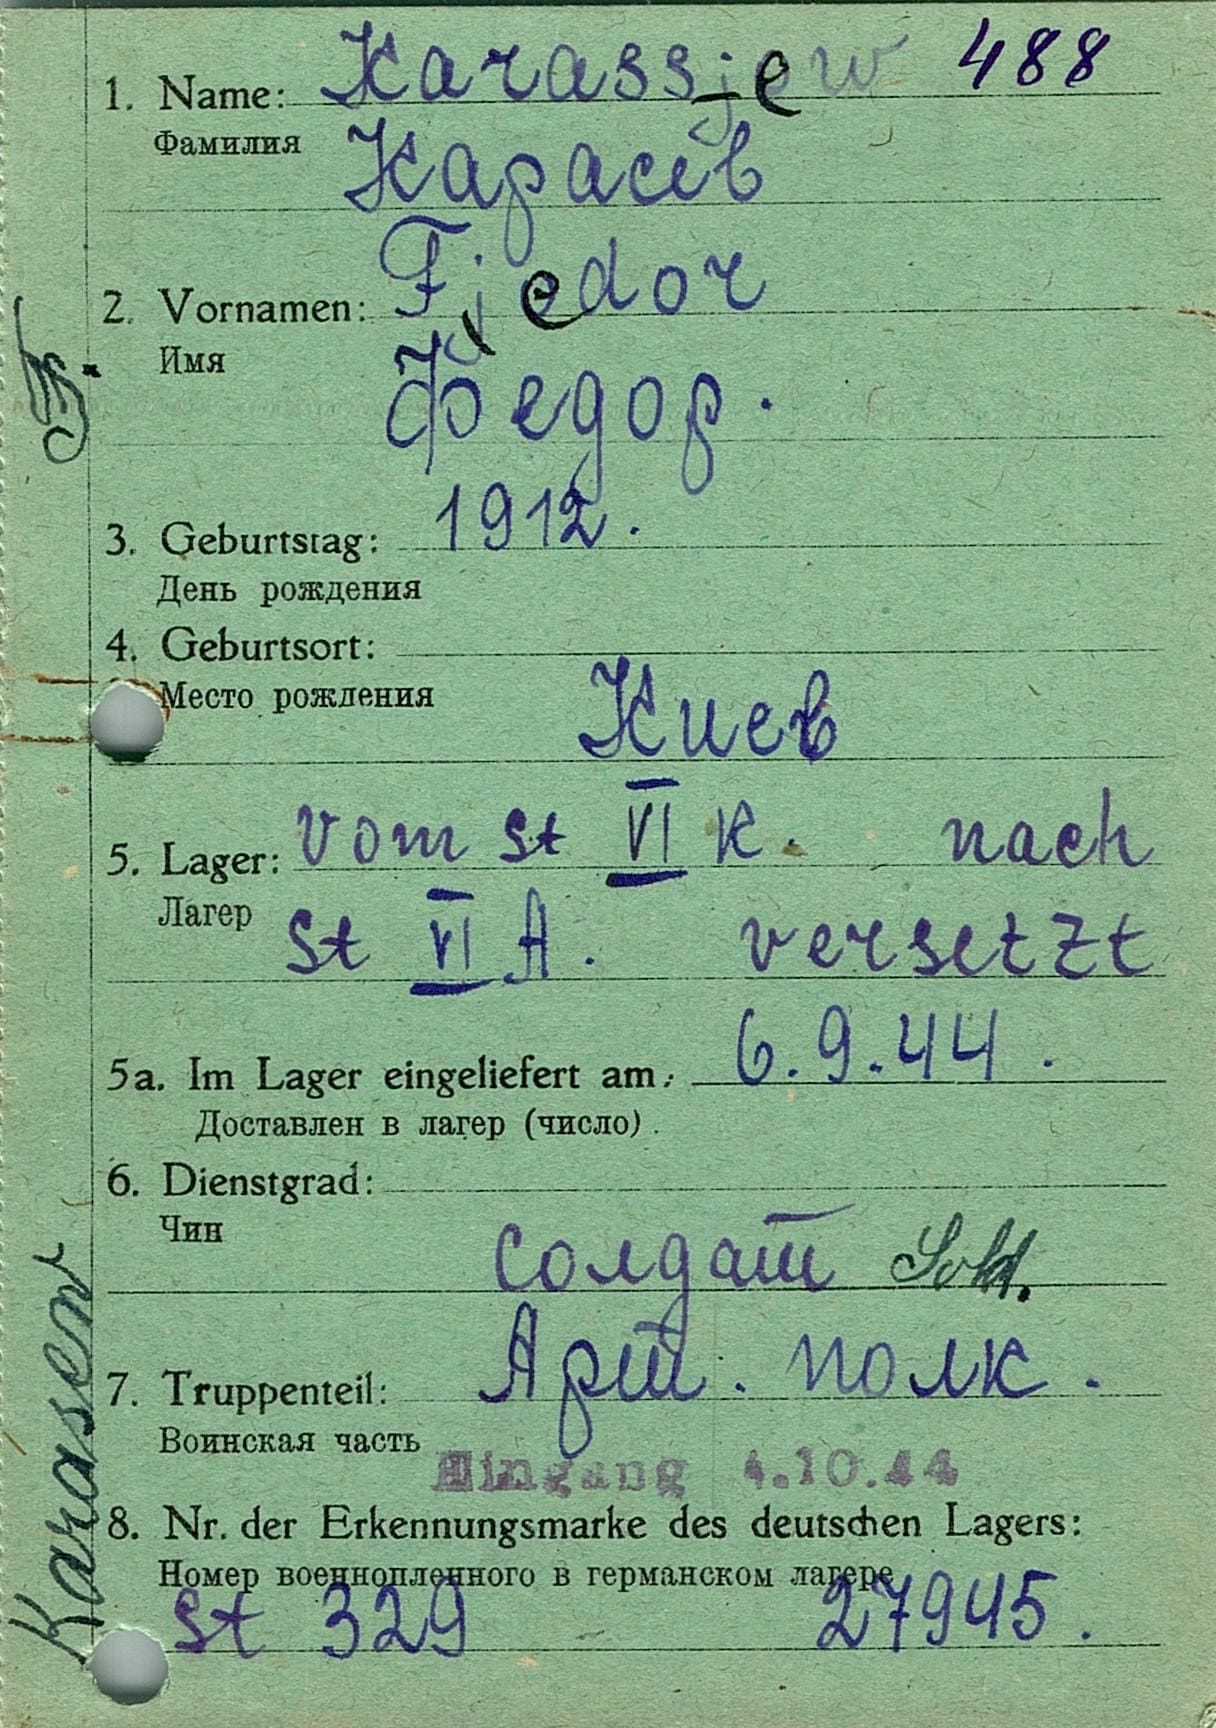 488
1. Name: Karassjew
Фамилия Карасев
2. Vornamen: Fjedor
Имя Федор.
3. Geburtstag: 1912.
День рождения
4. Geburtsort:
Место рождения Киев
5. Lager: vom St VI K. nach
Лагер St VI A. versetzt
5a. Im Lager eingeliefert am: 6.9.44.
Доставлен в лагер (число).
6. Dienstgrad:
Чин солдат Sold.
7. Truppenteil: Арт. полк.
Воинская часть
Eingang 4.10.44
8. Nr. der Erkennungsmarke des deutschen Lagers:
Номер военнопленного в германском лагере
St 329 27945.
Karasew
F.